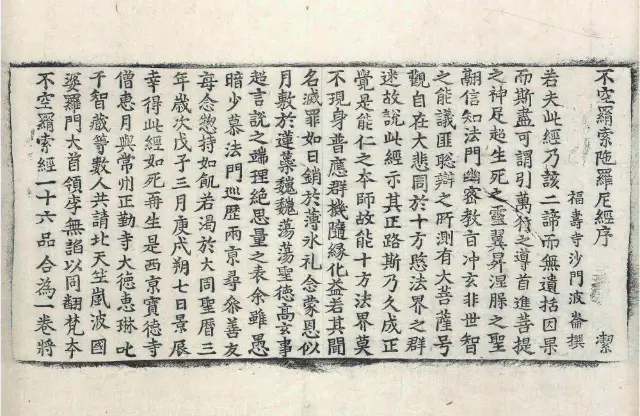 不空羂索陁羅尼經序 潔
福壽寺沙門波崙撰
若夫此經乃該二諦而無遺括因果
而斯盡可謂引萬符之導首進菩提
之神足超生死之靈翼昇涅脲之聖
翩信知法門幽密教旨冲玄非世智
之能議匪聡辯之所測有大菩薩号
觀自在大悲同於十方愍法界之群
迷故說此經示其正路斯乃久成正
覺是能仁之本師故能十方法界莫
不現身普應群機隨緣化益若其聞
名滅罪如日銷於薄氷礼念蒙恩似
月敷於蓮蘂巍巍蕩蕩聖德髙玄事
超言說之端理絕思量之表余雖愚
暗少慕法門巡歷兩京尋叅善友
每念惣持如飢若渴於大同聖曆三
年歲次戊子三月庚戌朔七日景辰
幸得此經如死再生是西京寶德寺
僧惠月與常州正勤寺大德惠琳叱
干智藏等數人共請北天笁嵐波國
婆羅門大首領李無諂以同翻梵本
不空羂索經一十六品合為一卷將